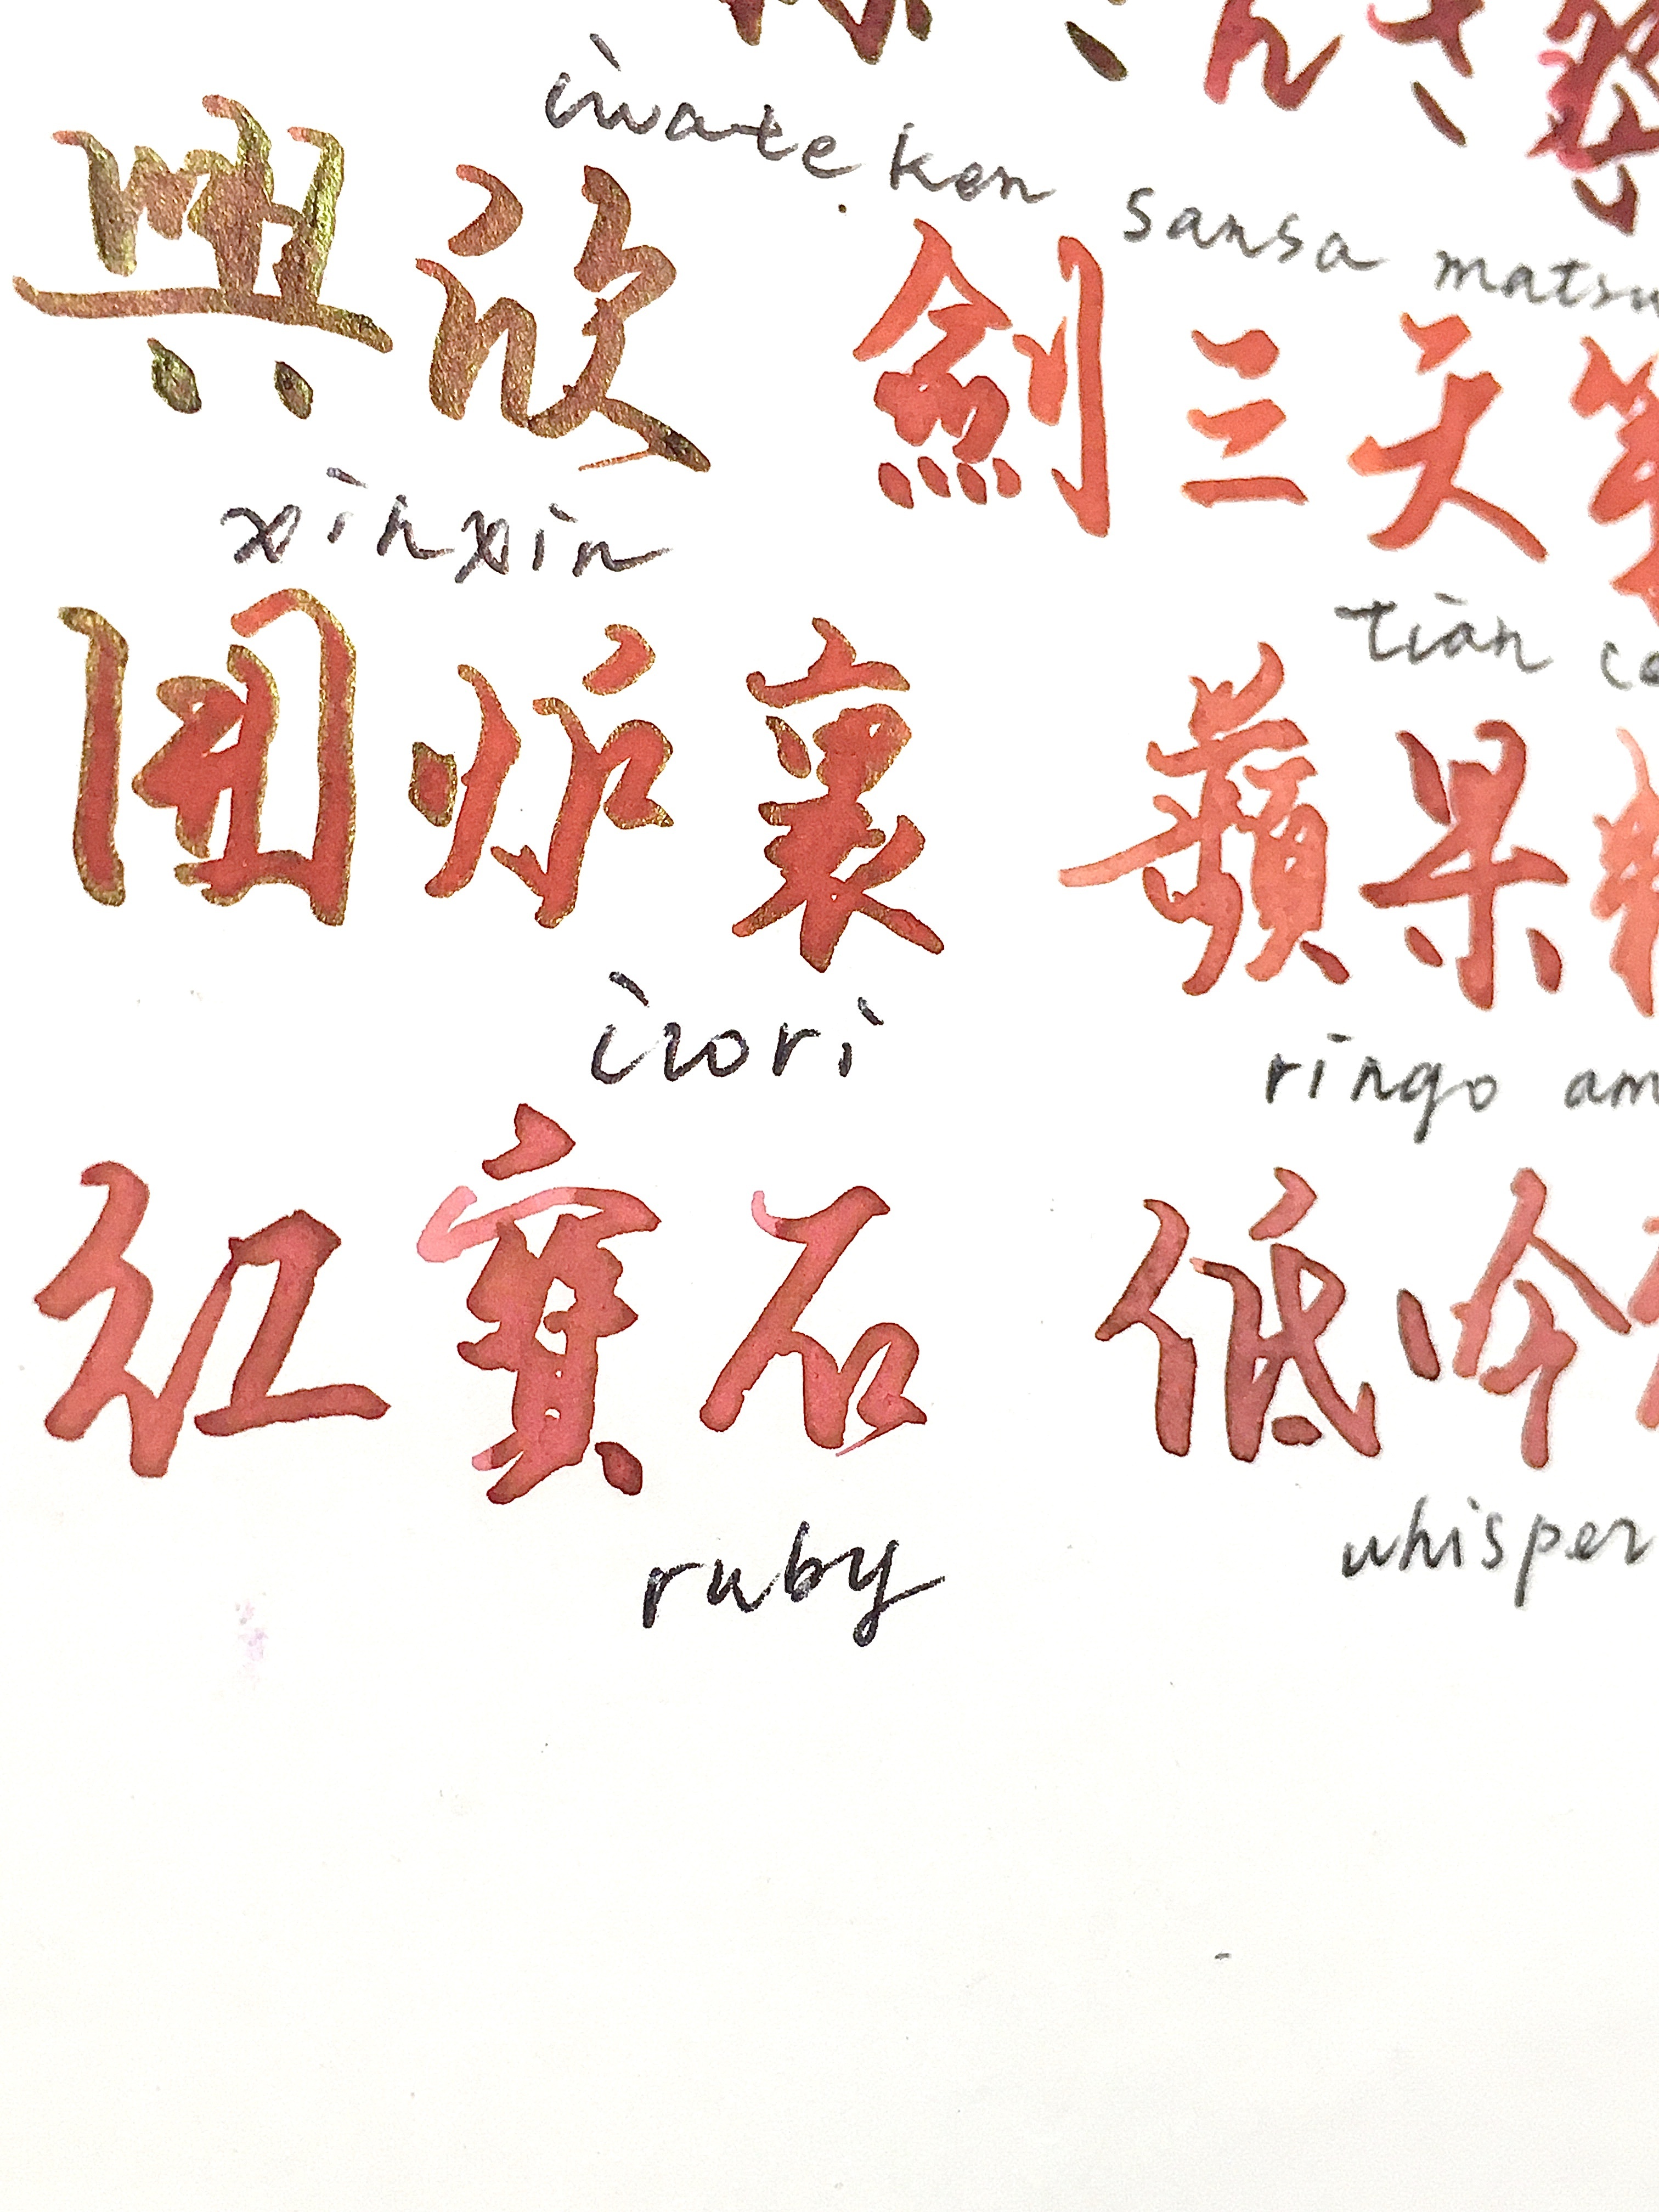 んさ
iwate ken sansa matsu
興欣
剑三天策
xin xin
tian ce
围炉裏
蘋果
irori
ringo am
紅寶石
低吟
ruby
whisper